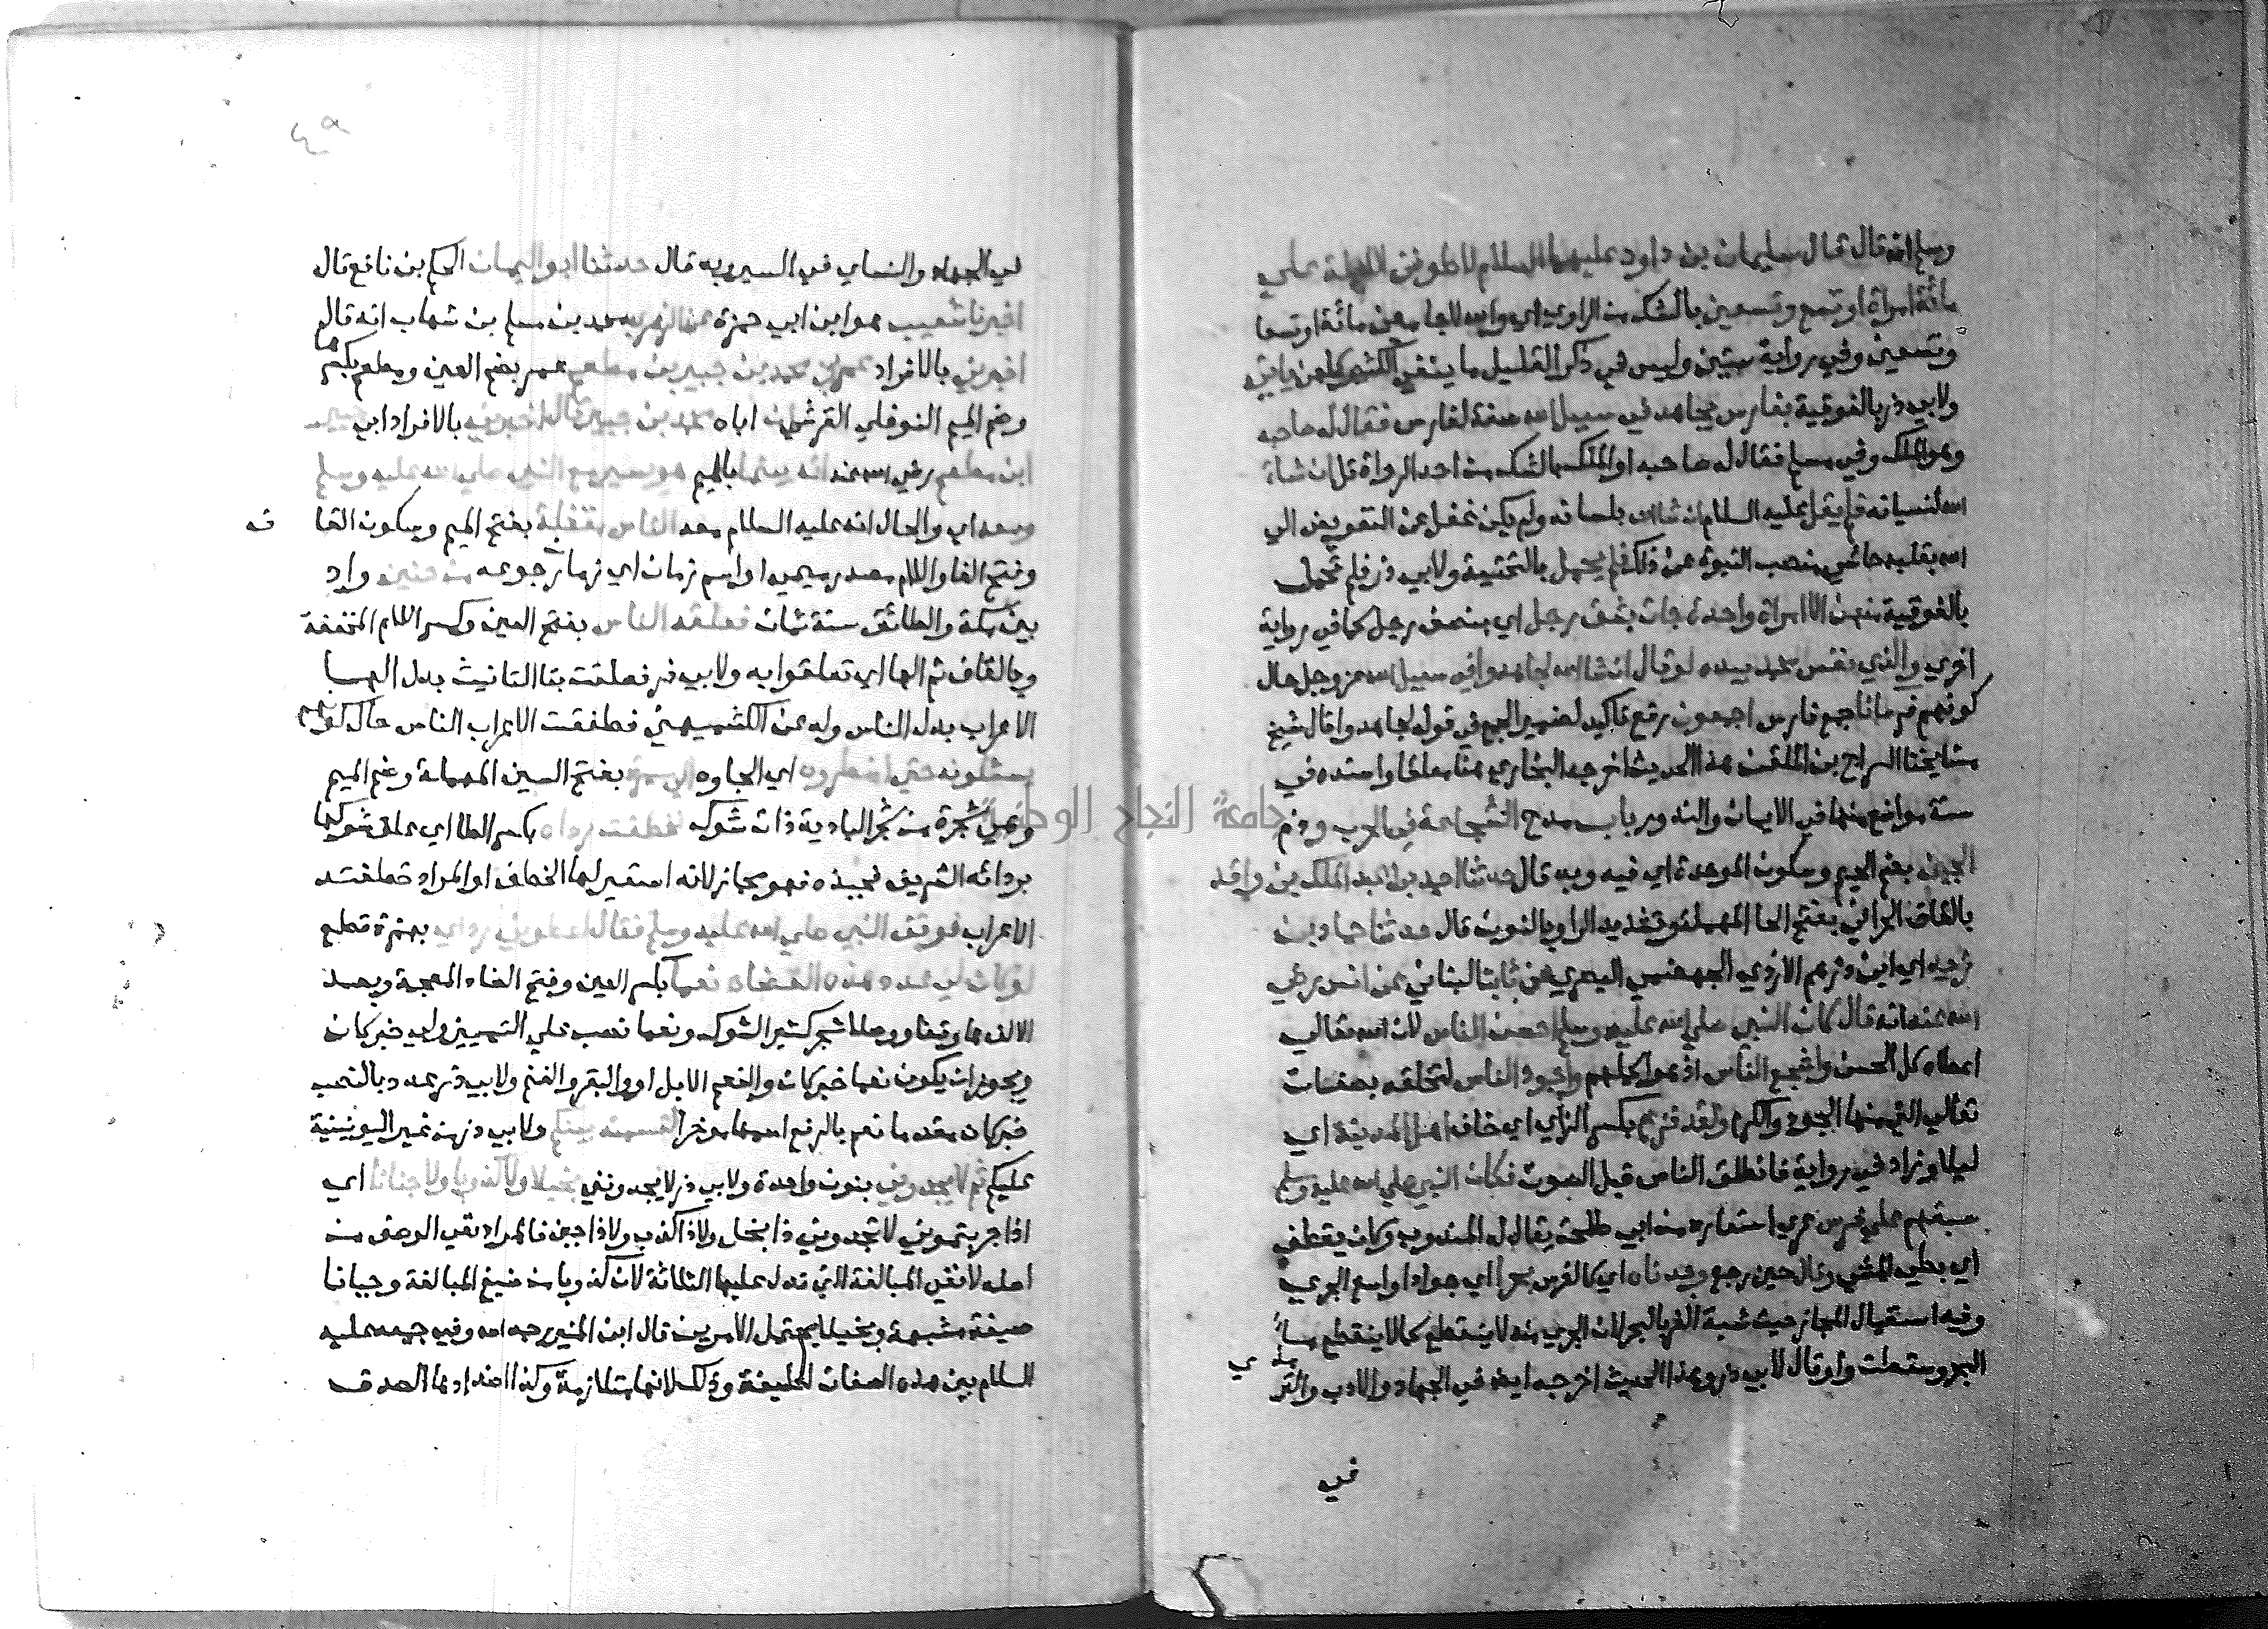 وسلم انه قال قال سليمان بن داود عليهما السلام لاطوفن الليلة علي
مائة امراة او تسع وتسعين بالشك من الراوي اي والله لاجامعن مائة او تسعا
وتسعين وفي رواية ستين وليس في ذكر القليل ما ينفي الكثير كلهن ياتي
ولابي ذر بالفوقية بفارس يجاهد في سبيل الله صفة لفارس فقال له صاحبه
وهو الملك وفي مسلم فقال له صاحبه او الملك بالشك من احد الرواة قل ان شاء
الله لنسيانه فلم يقل عليه السلام ان شا الله بلسانه ولم يكن غفل عن التفويض الي
الله بقلبه حاشي منصب النبوة عن ذلك فلم يحمل بالتحتية ولابي ذر فلم تحمل
بالفوقية منهن الا امراة واحدة جات بشق رجل اي بنصف رجل كما في رواية
اخري والذي نفس محمد بيده لو قال ان شا الله لجاهدوا في سبيل الله عز وجل حال
كونهم فرسانا جمع فارس اجمعون رفع تاكيد لضمير الجمع في قوله لجاهدوا قال شيخ
مشايخنا السراج بن الملقن هذا الحديث اخرجه البخاري هنا معلقا واسنده في
ستة مواضع منها في الايمان والنذور باب مدح الشجاعة في الحرب وذم
الجبن بضم الجيم وسكون الموحدة اي فيه وبه قال حدثنا احمد بن عبد الملك بن واقد
بالقاف الحراني بفتح الحا المهملة وتشديد الرا وبالنون قال حدثنا حماد بن
زيد اي ابن درهم الازدي الجهضمي البصري عن ثابت البناني عن انس رضي
الله عنه انه قال كان النبي صلي الله عليه وسلم احسن الناس لان الله تعالي
اعطاه كل الحسن واشجع الناس اذ هو اكملهم واجود الناس لتخلقه بصفات
تعالي التي منها الجود والكرم ولقد فزع بكسر الزاي اي خاف اهل المدينة اي
ليلا وزاد في رواية فانطلق الناس قبل الصوت فكان النبي صلي الله عليه وسلم
سبقهم علي فرس عري استعاره من ابي طلحة يقال له المندوب وكان يقطف
اي بطي المشي وقال حين رجع وجدناه اي الفرس بحرا اي جوادا واسع الجري
وفيه استعمال المجاز حيث شبه الفرس بالبحر لان الجري منه لا ينقطع كما لا ينقطع ماء
البحر وسقطت واو قال لابي ذر وهذا الحديث اخرجه ايضا في الجهاد والادب والتر
مذي
في
في الجهاد والنساي في السير وبه قال حدثنا ابو اليمان الحكم بن نافع قال
اخبرنا شعيب هو ابن ابي حمزة عن الزهري محمد بن مسلم بن شهاب انه قال
اخبرني بالافراد عمر بن محمد بن جبير بن مطعم عمر بضم العين ومطعم بكسرها
وضم الميم النوفلي القرشي ان اباه محمد بن جبير قال اخبرني بالافراد ابي جبير
ابن مطعم رضي الله عنه انه بينما بالميم هو يسير مع النبي صلي الله عليه وسلم
ومعه اي والحال انه عليه السلام معه الناس مقفلة بفتح الميم وسكون القا
ف
وفتح الفا واللام مصدر ميمي او اسم زمان اي زمان رجوعه من حنين واد
بين مكة والطائف سنة ثمان فعلقه الناس بفتح العين وكسر اللام المخففة
وبالقاف ثم الها اي تعلقوا به ولابي ذر فعلقت بتا التانيث بدل الها
الاعراب بدل الناس وله عن الكشميهني فطفقت الاعراب الناس حال كونهم
يسئلونه حتي اضطروه اي الجاوه الي سمرة بفتح السين المهملة وضم الميم
وهي شجرة من شجر البادية ذات شوك فخطفت رداه بكسر الطا اي علق شوكها
بردائه الشريف فجبذه فهو مجاز لانه استعير لها الخطف او المراد خطفته
الاعراب فوقف النبي صلي الله عليه وسلم فقال اعطوني ردائي بهمزة قطع
لو كان لي عدد هذه العضاه نعما بكسر العين وفتح الضاد المعجمة وبعد
الالف ها وقفا ووصلا شجر كثير الشوك ونعما نصب علي التمييز ولي خبر كان
ويجوز ان يكون نعما خبر كان والنعم الابل او والبقر والغنم ولابي ذر عدد بالنصب
خبر كان مقدما نعم بالرفع اسمها موخرا لقسمته بينكم ولابي ذر من غير اليونينية
عليكم ثم لا تجدوني بنون واحدة ولابي ذر لا تجدونني بخيلا ولا كذوبا ولا جبانا اي
اذا جربتموني لا تجدوني ذا بخل ولا ذا كذب ولا ذا جبن فالمراد نفي الوصف من
اصله لا نفي المبالغة التي تدل عليها الثلاثة لان كذوبا من صيغ المبالغة وجبانا
صيغة مشبهة وبخيلا يحتمل الامرين قال ابن المنير رحمه الله وفي جمعه عليه
السلام بين هذه الصفات لطيفة وذلك لانها متلازمة وكذا اضدادها الصدق